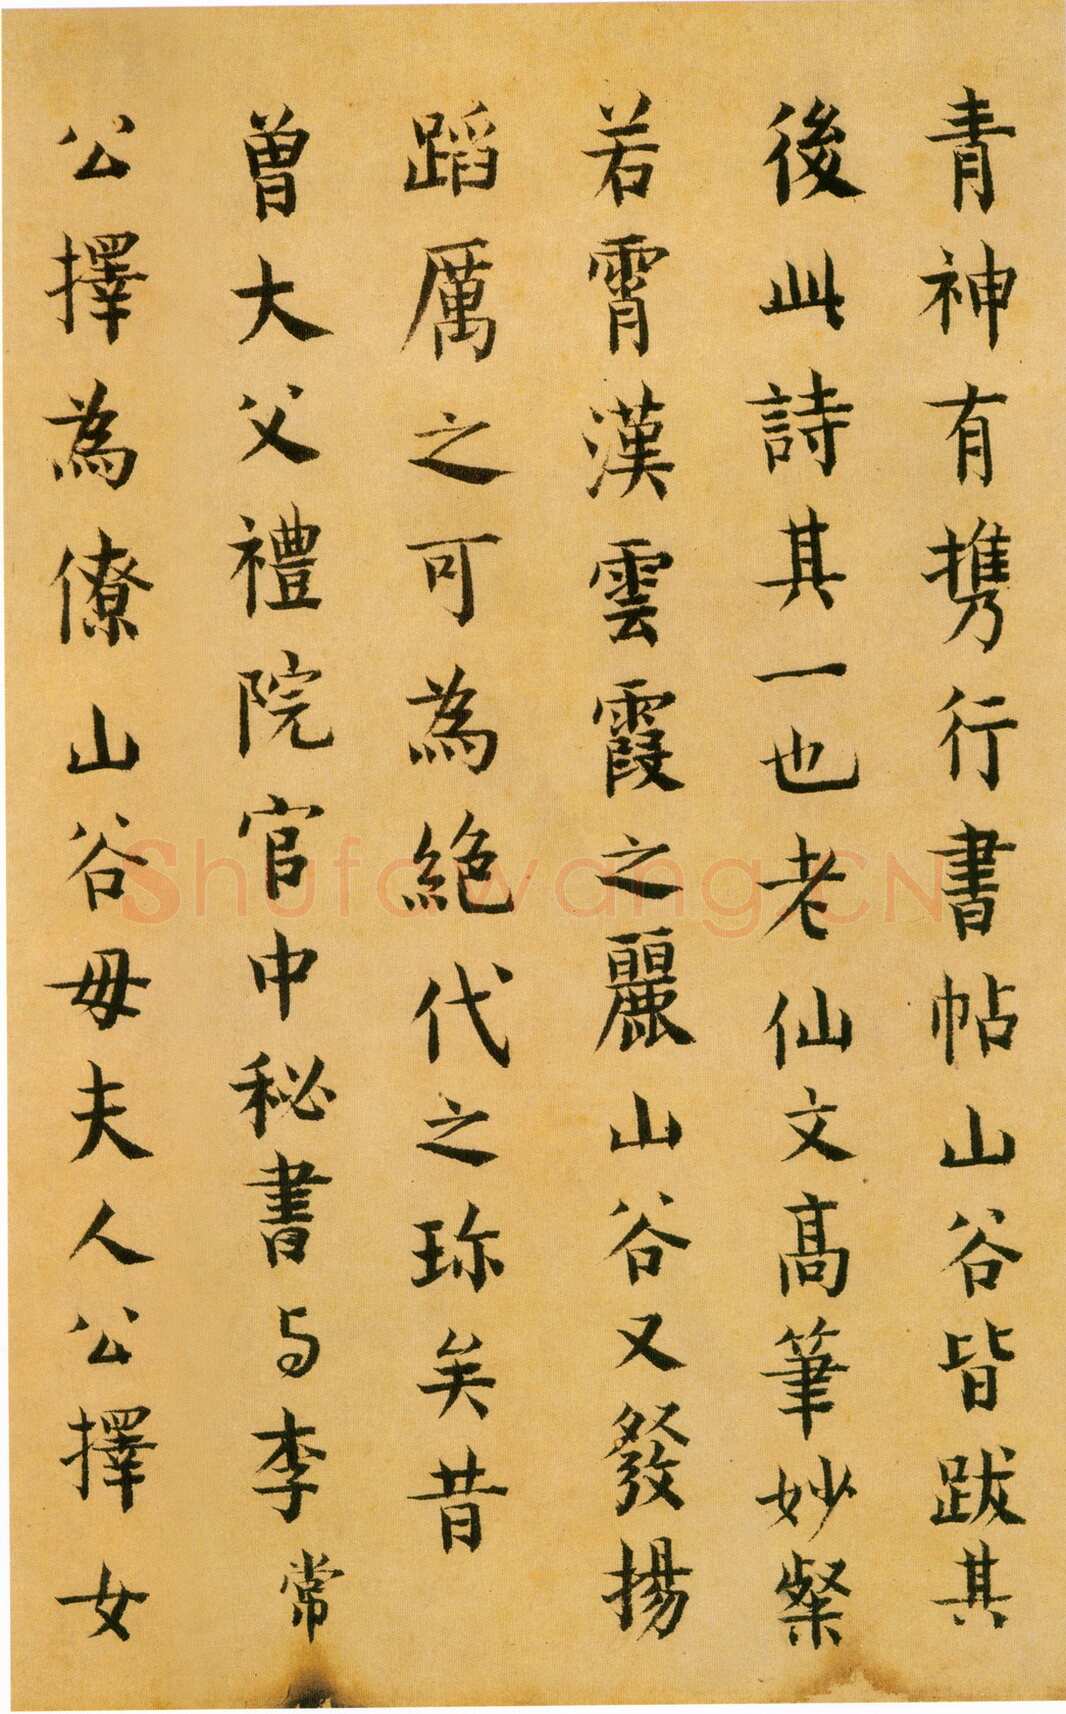 青神有携行書帖山谷皆跋其
後此詩其一也老仙文高筆妙粲
若霄漢雲霞之麗山谷又發揚
蹈厲之可為絕代之珎矣昔
曾大父禮院官中秘書与李常
公擇為僚山谷母夫人公擇女
Shufawang.CN